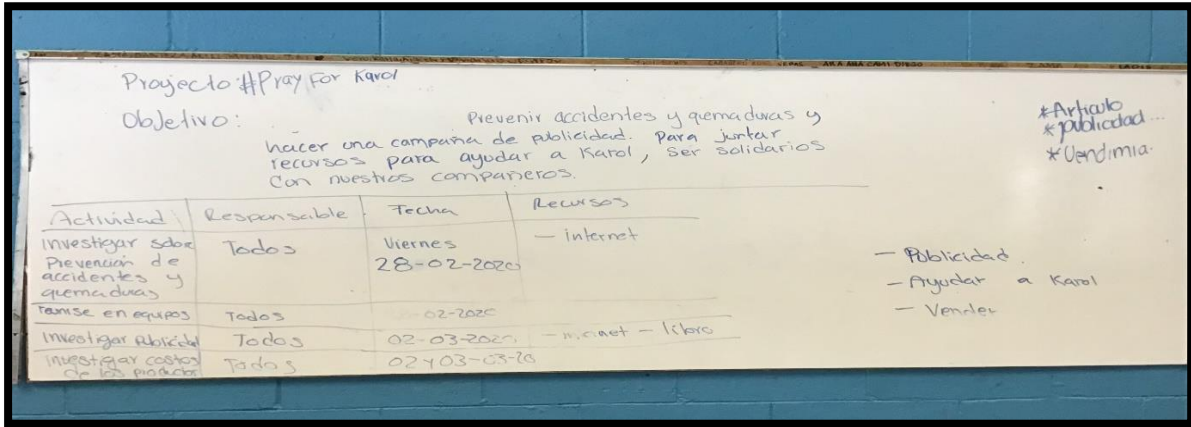 Proyecto #Pray For Karol
Objetivo: Prevenir accidentes y quemaduras y
hacer una campaña de publicidad. Para juntar
recursos para ayudar a Karol, ser solidarios
con nuestros compañeros.
*Articulo
*publicidad...
*Vendimia.
Actividad Responsable Fecha Recursos
Investigar sobre
Prevención de
accidentes y
quemaduras
Todos
Viernes
28-02-2020
- internet
en equipos Todos 02-2020
Investigar Publicidad Todos 02-03-2020 - libro
Investigar costos
de los productos
Todos
02 y 03-03-20
- Publicidad
- Ayudar a Karol
- Vender